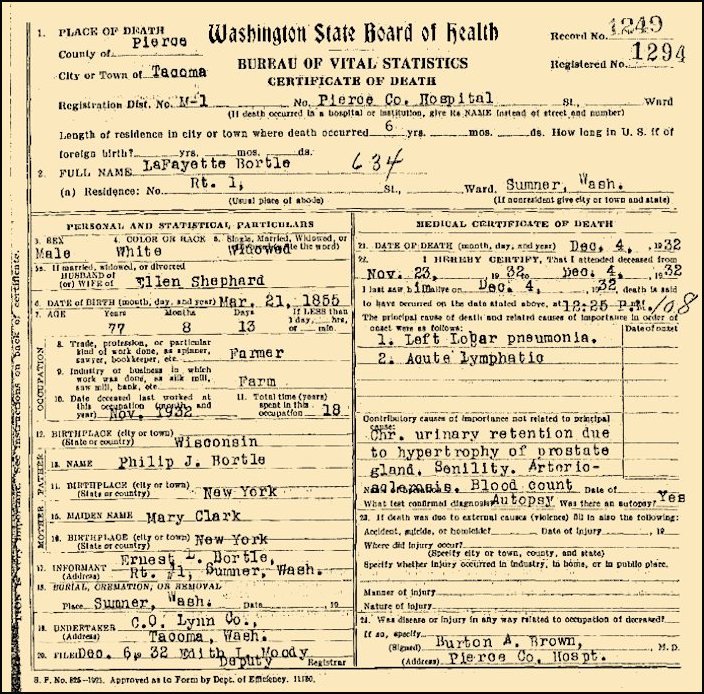 1. PLACE OF DEATH Washington State Board of Health Record No. 1249
County of Pierce
BUREAU OF VITAL STATISTICS Registered No. 1294
City or Town of Tacoma CERTIFICATE OF DEATH
Registration Dist. No. M-1 No. Pierce Co. Hospital St., Ward
(If death occurred in a hospital or institution, give its NAME instead of street and number)
Length of residence in city or town where death occurred 6 yrs. mos. ds. How long in U. S. if of
foreign birth? yrs. mos. ds.
2. FULL NAME LaFayette Bortle 634
(a) Residence: No. Rt. 1, St., Ward. Sumner, Wash.
(Usual place of abode) (If nonresident give city or town and state)
PERSONAL AND STATISTICAL PARTICULARS
3. SEX 4. COLOR OR RACE 5. Single, Married, Widowed, or
Male White Widowed (write the word)
5a. If married, widowed, or divorced
HUSBAND of
(or) WIFE of Ellen Shephard
6. DATE OF BIRTH (month, day, and year) Mar. 21, 1855
7. AGE Years Months Days If LESS than
1 day, hrs.
77 8 13 or min.
OCCUPATION
8. Trade, profession, or particular
kind of work done, as spinner,
sawyer, bookkeeper, etc. Farmer
9. Industry or business in which
work was done, as silk mill,
saw mill, bank, etc. Farm
10. Date deceased last worked at
this occupation (month and
year) Nov. 1932
11. Total time (years)
spent in this
occupation 18
12. BIRTHPLACE (city or town)
(State or country) Wisconsin
FATHER
13. NAME Philip J. Bortle
14. BIRTHPLACE (city or town)
(State or country) New York
MOTHER
15. MAIDEN NAME Mary Clark
16. BIRTHPLACE (city or town)
(State or country) New York
17. INFORMANT Ernest L. Bortle,
(Address) Rt. #1, Sumner, Wash.
18. BURIAL, CREMATION, OR REMOVAL
Place Sumner, Wash. Date 19
19. UNDERTAKER C.O. Lynn Co.,
(Address) Tacoma, Wash.
20. FILED Dec. 6, 32 Edith L. Moody
Deputy Registrar
MEDICAL CERTIFICATE OF DEATH
21. DATE OF DEATH (month, day, and year) Dec. 4, 1932
22. I HEREBY CERTIFY, That I attended deceased from
Nov. 23, 1932 to Dec. 4, 1932
I last saw him alive on Dec. 4, 1932, death is said
to have occurred on the date stated above, at 12:25 P.M. 108
The principal cause of death and related causes of importance in order of
onset were as follows: Date of onset
1. Left Lobar pneumonia.
2. Acute lymphatic
Contributory causes of importance not related to principal
cause:
Chr. urinary retention due
to hypertrophy of prostate
gland. Senility. Arterio-
sclerosis. Blood count
Name of operation Date of
What test confirmed diagnosis? Autopsy Was there an autopsy? Yes
23. If death was due to external causes (violence) fill in also the following:
Accident, suicide, or homicide? Date of injury , 19
Where did injury occur?
(Specify city or town, county, and state)
Specify whether injury occurred in industry, in home, or in public place.
Manner of injury
Nature of injury
24. Was disease or injury in any way related to occupation of deceased?
If so, specify
(Signed) Burton A. Brown, M. D.
(Address) Pierce Co. Hospt.
S. F. No. 825—1921. Approved as to Form by Dept. of Efficiency.